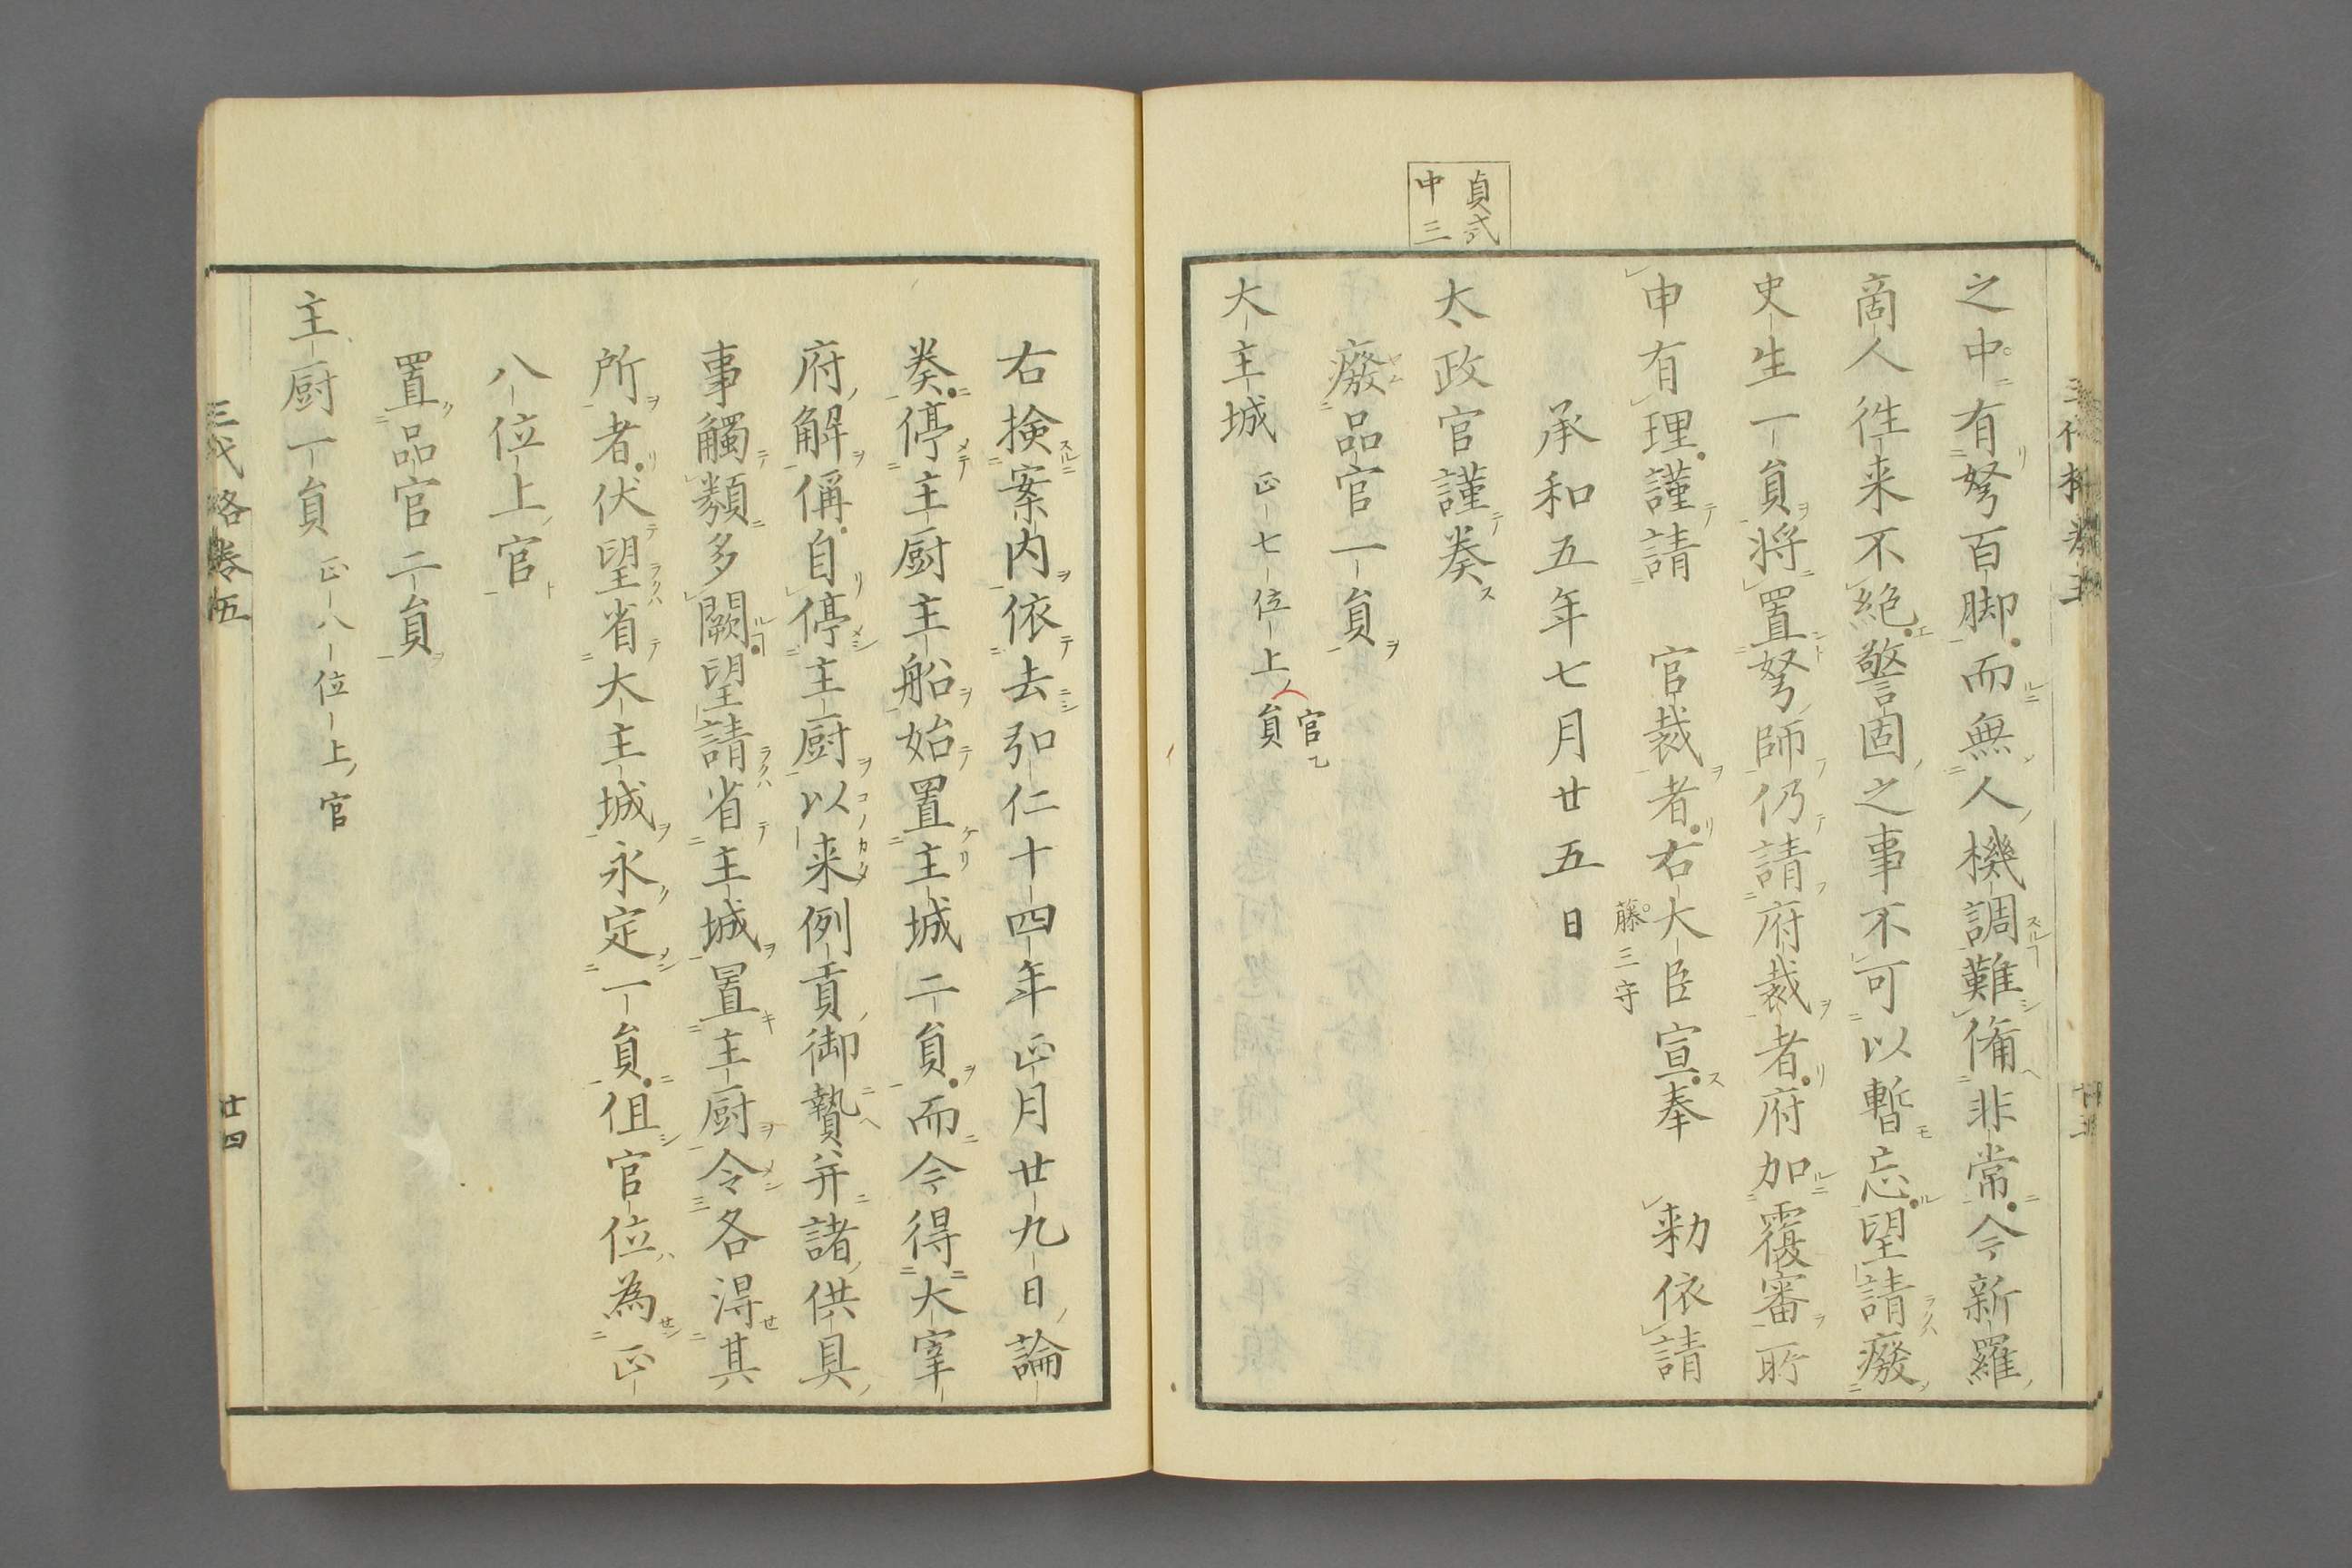 貞式
中三
之中有弩百脚而無人機調難備非常今新羅
商人往来不絶警固之事不可以暫忘望請廢
史生一員將置弩師仍請府裁者府加覆審所
申有理謹請　官裁者右大臣宣奉　勅依請
藤三守
承和五年七月廿五日
太政官謹奏
廢品官一員
大主城 正七位上員
官乙
右検案内依去弘仁十四年正月廿九日論
奏停主厨主船始置主城二員而今得大宰
府解偁自停主厨以来例貢御贄并諸供具
事觸類多闕望請省主城置主厨令各得其
所者伏望省大主城永定一員但官位為正
八位上官
置品官二員
主厨一員 正八位上官
三代格卷五
廿四